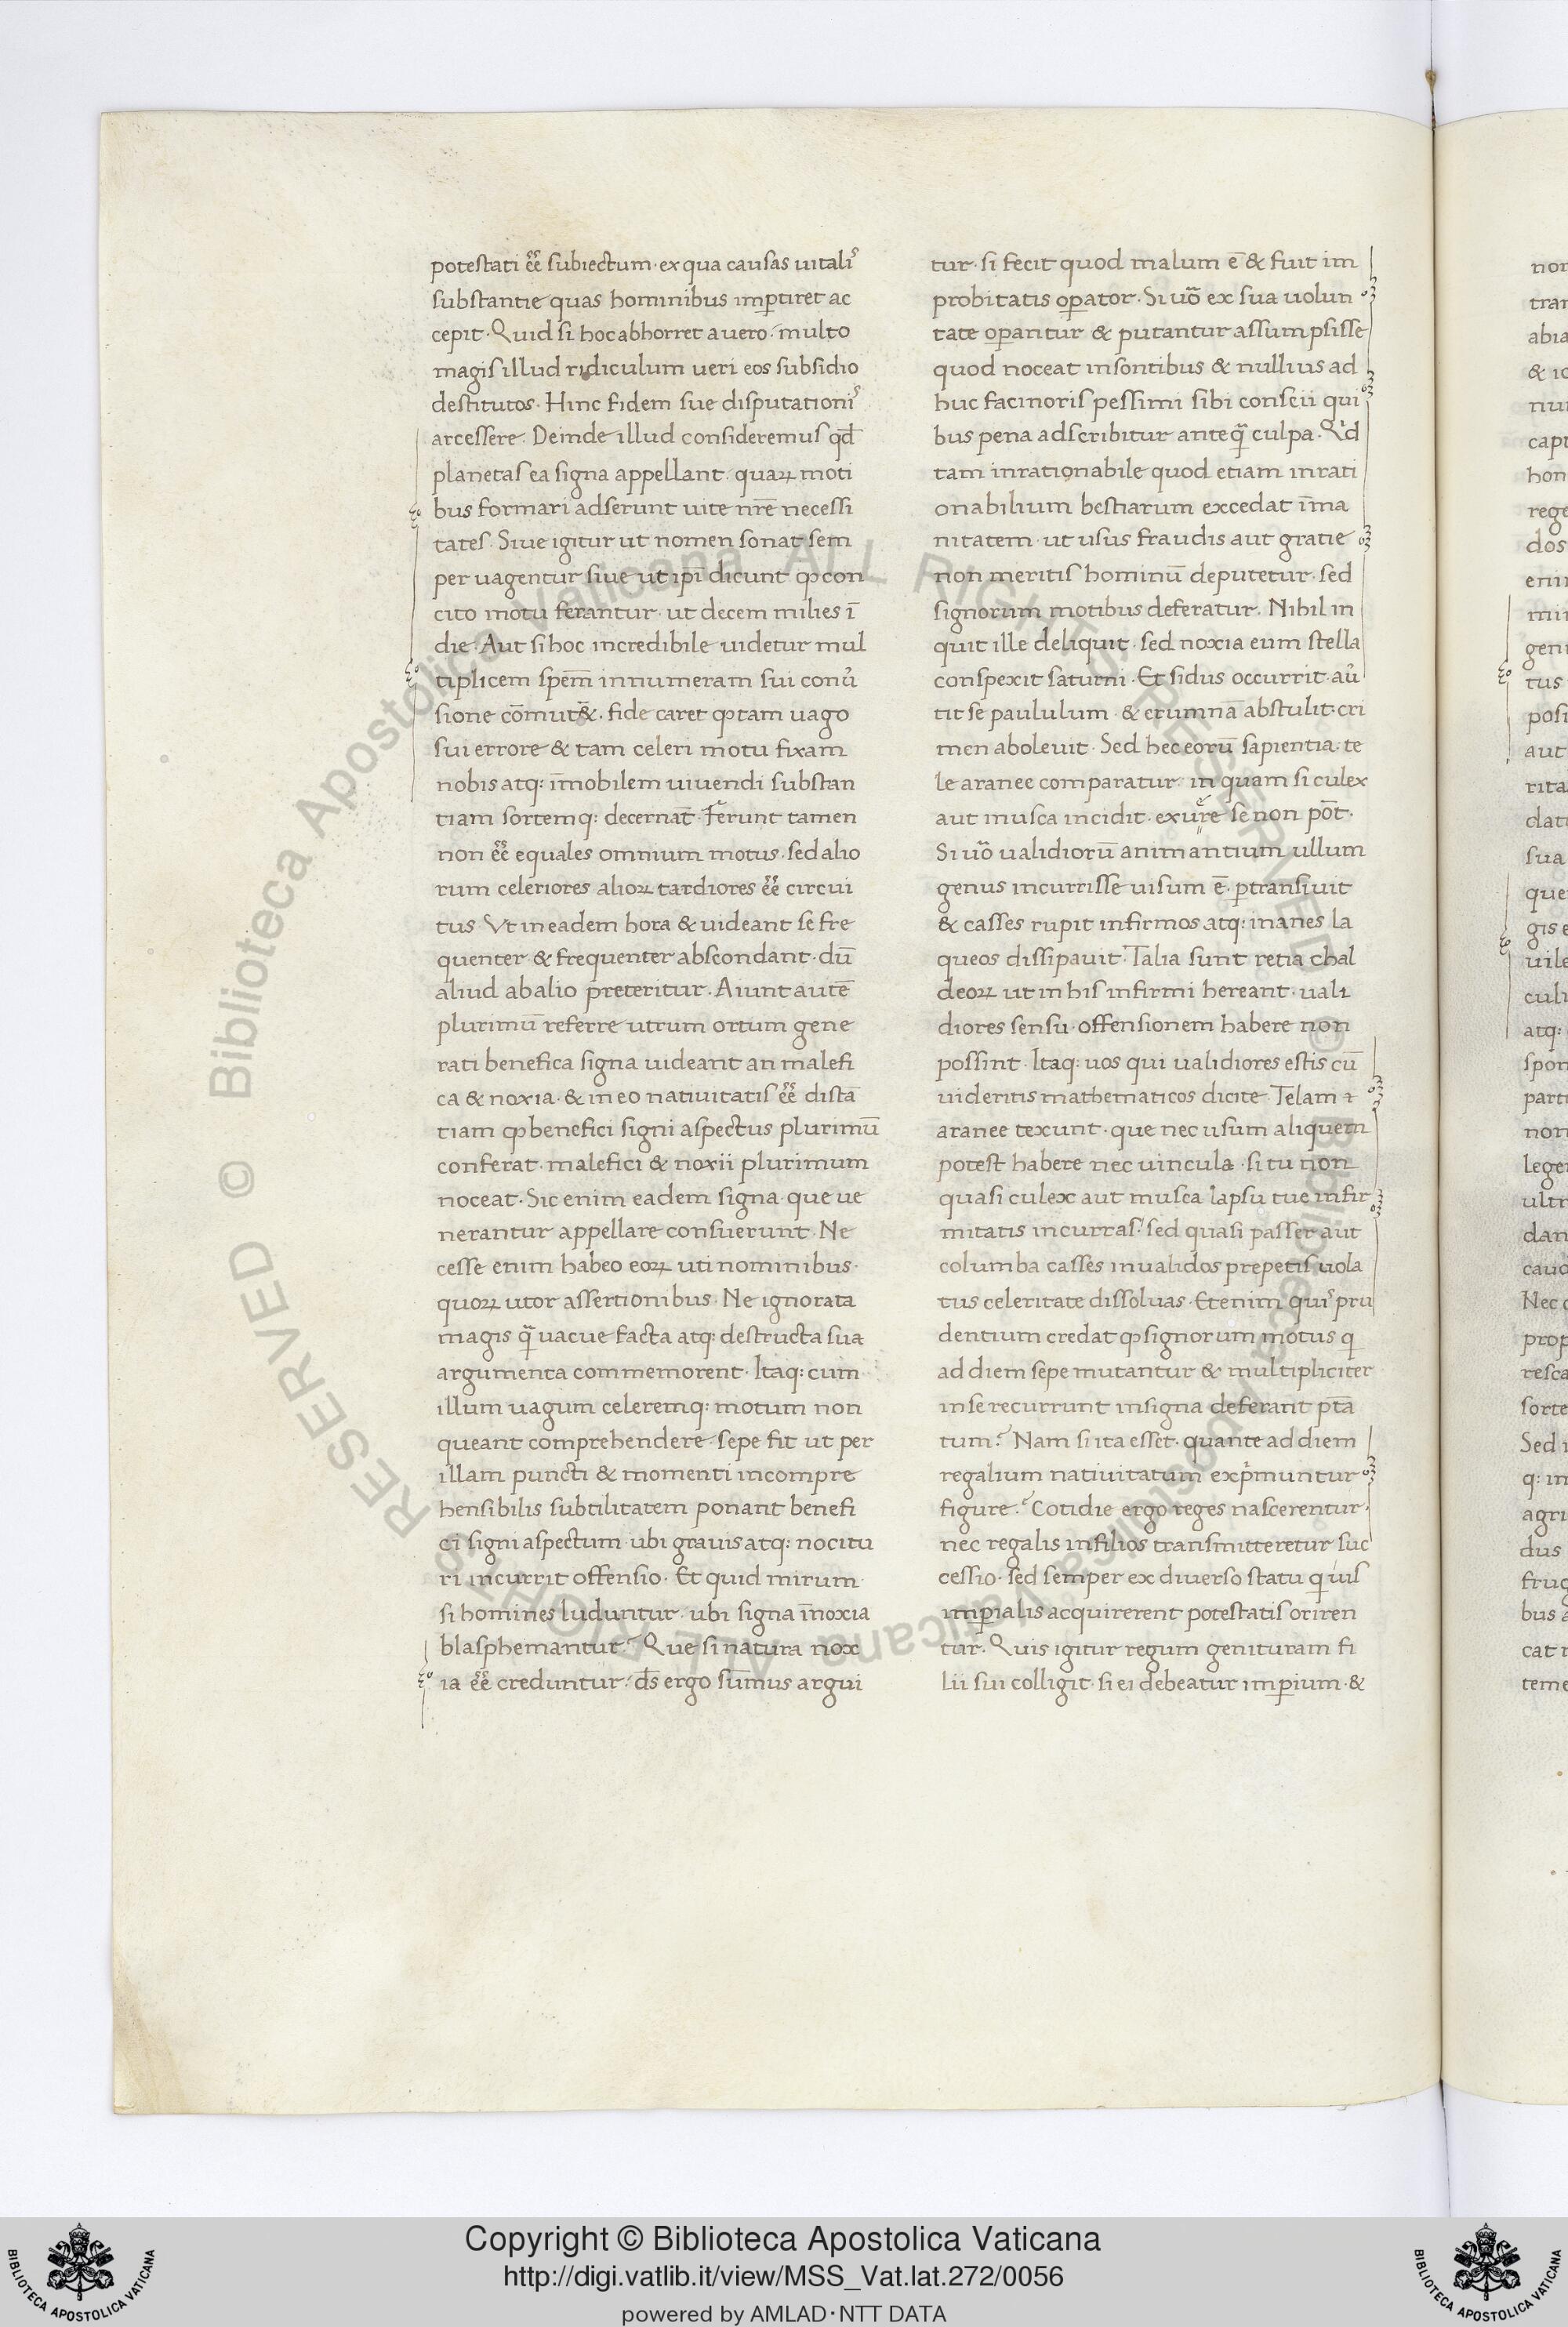 potestati ẽẽ subiectum· ex qua causas uitalis
substantie quas hominibus imꝑtiret ac
cepit· Quid si hoc abhorret a uero· multo
magis illud ridiculum ueri eos subsidio
destitutos· Hinc fidem sue disputationis
arcessere· Deinde illud consideremus qđ
planetas ea signa appellant· quaꝝ moti
bus formari adserunt uite nr̄e necessi
tates· Siue igitur ut nomen sonat sem
per uagentur siue ut ip̄i dicunt ꝙ con
cito motu ferantur· ut decem milies ī
die· Aut si hoc incredibile uidetur mul
tiplicem spēm innumeram sui conu̓
sione cōmut&̄· fide caret ꝙ tam uago
sui errore & tam celeri motu fixam
nobis atq: īmobilem uiuendi substan
tiam sortemq: decernat̄· Ferunt tamen
non ẽẽ equales omnium motus· sed alio
rum celeriores alioꝝ tardiores ẽẽ circui
tus· Vt in eadem hora & uideant se fre
quenter & frequenter abscondant· dū
aliud ab alio preteritur· Aiunt autē
plurimū referre utrum ortum gene
rati benefica signa uideant an malefi
ca & noxia· & in eo natiuitatis ẽẽ distā
tiam ꝙ benefici signi aspectus plurimū
conferat· malefici & noxii plurimum
noceat· Sic enim eadem signa que ue
nerantur appellare consuerunt· Ne
cesse enim habeo eoꝝ uti nominibus·
quoꝝ utor assertionibus· Ne ignorata
magis q̄ uacue facta atq: destructa sua
argumenta commemorent· Itaq: cum
illum uagum celeremq: motum non
queant comprehendere· sepe fit ut per
illam puncti & momenti incompre
hensibilis subtilitatem ponant benefi
ci signi aspectum· ubi grauis atq: nocitu
ri incurrit offensio· Et quid mirum
si homines luduntur· ubi signa īnoxia
blasphemantur? Que si natura nox
ia ẽẽ creduntur· d̄s ergo sūmus argui
tur· si fecit quod malum ē & fuit im
probitatis oꝑator· Si uō ex sua uolun
tate oꝑantur & putantur assumpsisse
quod noceat insontibus & nullius ad
huc facinoris pessimi sibi conscii qui
bus pena adscribitur anteq̄ culpa· Qid
tam inrationabile quod etiam inrati
onabilium bestiarum excedat īma
nitatem· ut usus fraudis aut gratie
non meritis hominū deputetur· sed
signorum motibus deferatur· Nihil in
quit ille deliquit· sed noxia eum stella
conspexit saturni· Et sidus occurrit· au̓
tit se paululum· & erumnā abstulit· cri
men aboleuit· Sed hec eorū sapientia· te
le aranee comparatur· in quam si culex
aut musca incidit· exuere se non pōt·
Si uō ualidiorū animantium ullum
genus incurrisse uisum ē· ꝑtransiuit
& casses rupit infirmos atq: inanes la
queos dissipauit· Talia sunt retia chal
deoꝝ ut in his infirmi hereant· uali
diores sensu· offensionem habere non
possint· Itaq: uos qui ualidiores estis cū
uideritis mathematicos dicite· Telam
aranee texunt· que nec usum aliquem
potest habere nec uincula· si tu non
quasi culex aut musca lapsu tue infir
mitatis incurras· sed quasi passer aut
columba casses inualidos prepetis uola
tus celeritate dissoluas· Etenim quis pru
dentium credat ꝙ signorum motus q
ad diem sepe mutantur & multipliciter
in se recurrunt insigna deferant pt̄ā
tum? Nam si ita esset· quante ad diem
regalium natiuitatum expͥmuntur
figure? Cotidie ergo reges nascerentur·
nec regalis in filios transmitteretur suc
cessio· sed semper ex diuerso statu q uis
imꝑialis acquirerent potestatis oriren
tur· Quis igitur regum genituram fi
lii sui colligit· si ei debeatur imꝑium· &
Copyright © Biblioteca Apostolica Vaticana
http://digi.vatlib.it/view/MSS_Vat.lat.272/0056
powered by AMLAD·NTT DATA
BIBLIOTECA APOSTOLICA VATICANA
BIBLIOTECA APOSTOLICA VATICANA